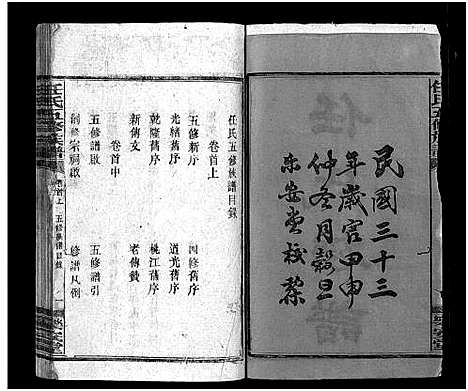 民國三十三
年歲官甲申
仲冬月穀旦
東安堂校梓
任氏五修族譜
任氏五修族譜目錄
卷首上
五修新序
四修舊序
光緒舊序
道光舊序
乾隆舊序
桃江舊序
新傳文
老傳贊
卷首中
五修譜啟
五修譜引
創修宗祠啟
修譜凡例
任氏五修族譜
卷首上
五修族譜目錄